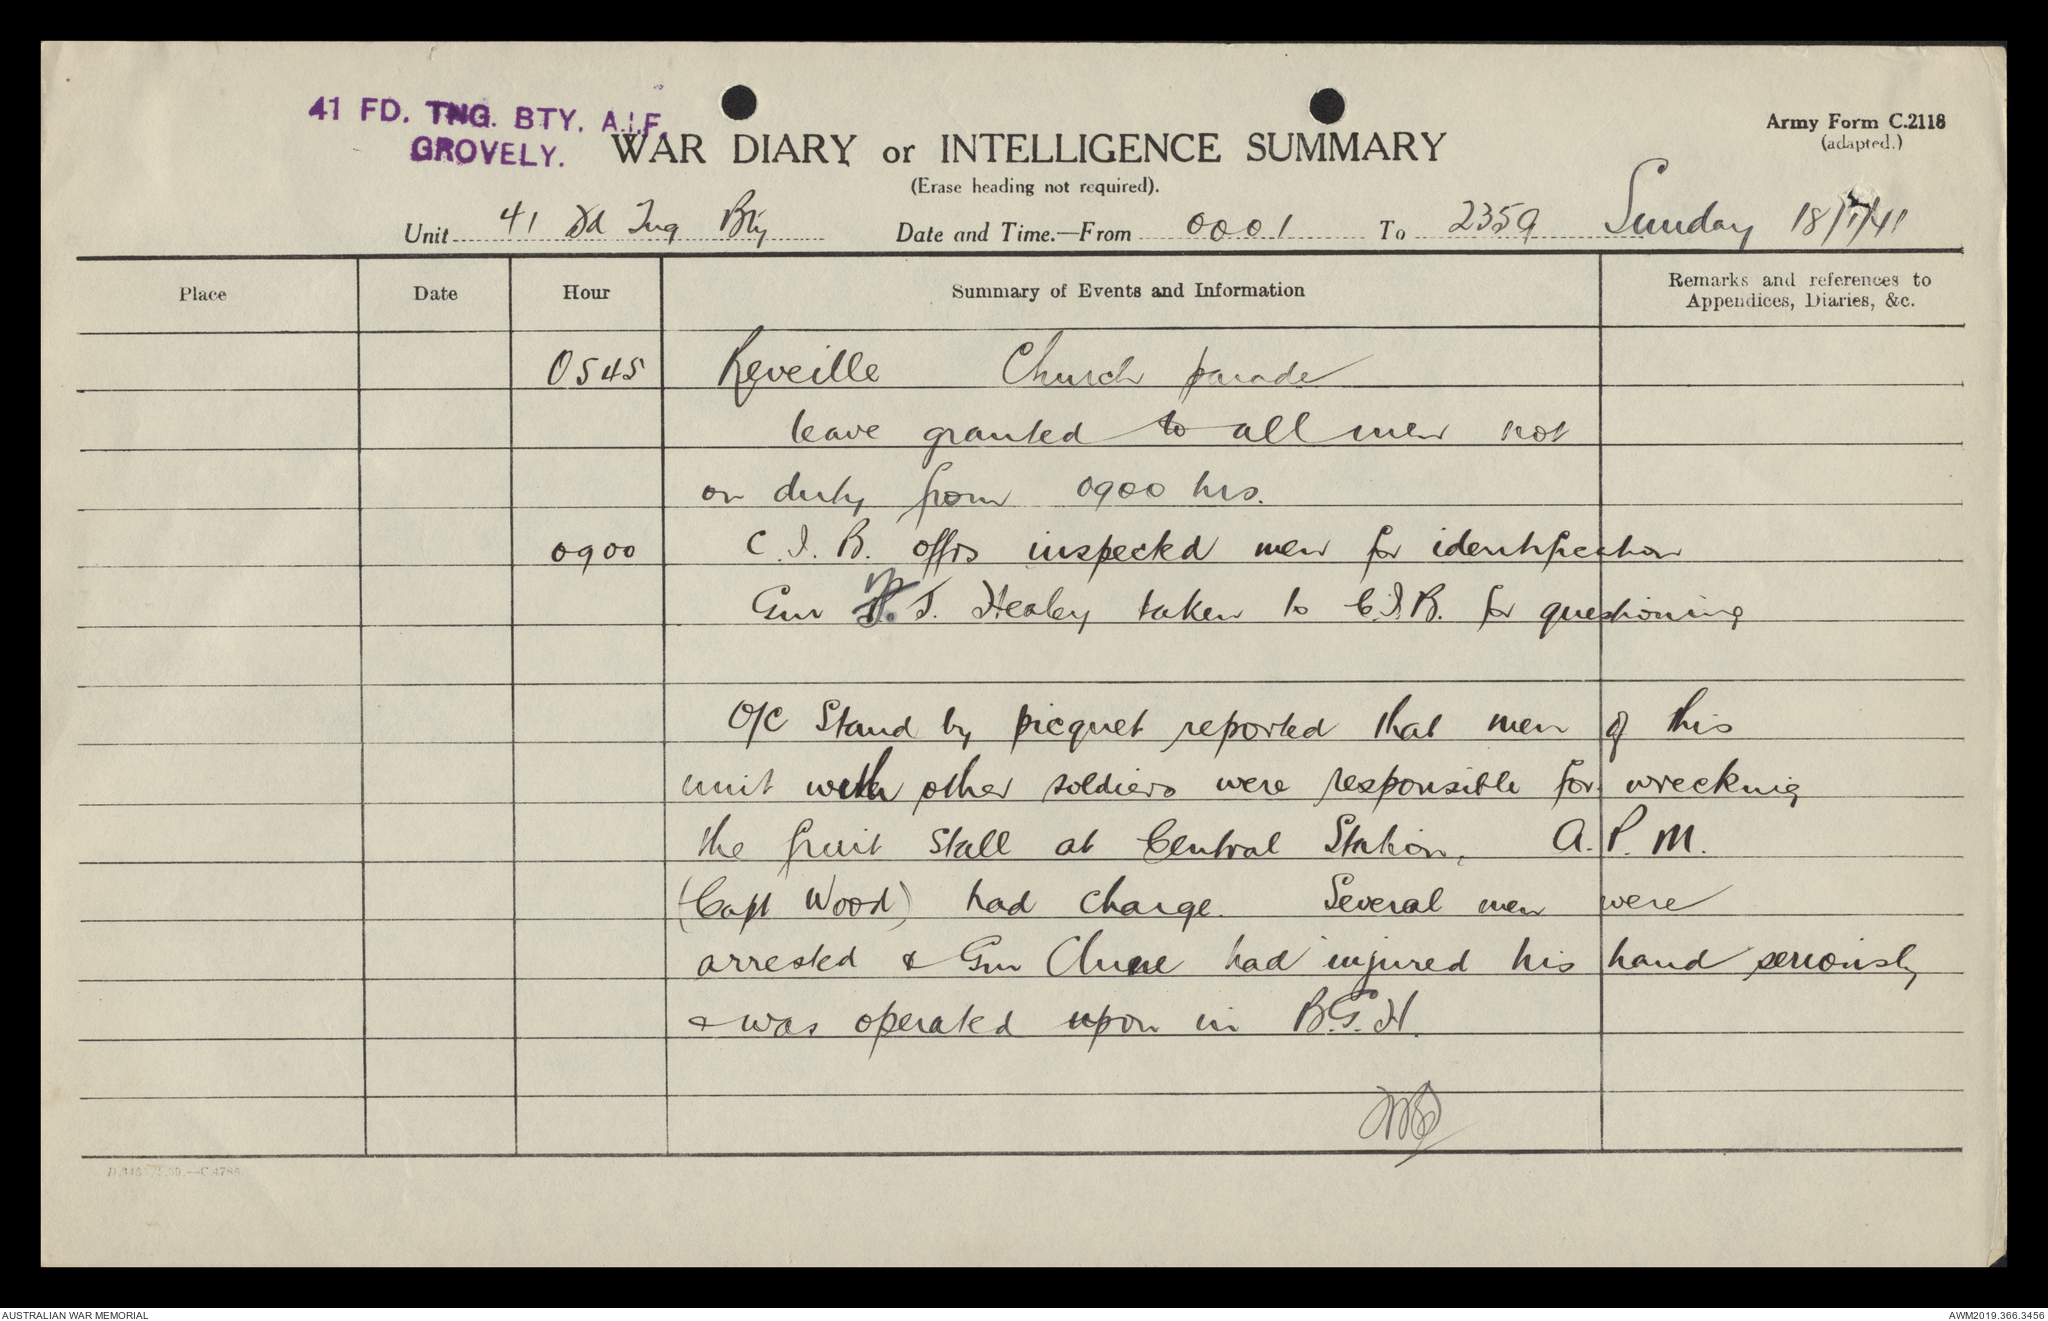 41 FD. TNG. BTY. A.I.F.
GROVELY.
WAR DIARY or INTELLIGENCE SUMMARY
(Erase heading not required).
Army Form C.2118
(adapted.)
Unit 41 Fd Tng Bty Date and Time.—From 0001 To 2359 Sunday 18/ /41
Place Date Hour Summary of Events and Information Remarks and references to
Appendices, Diaries, &c.
0545 Reveille Church parade
leave granted to all men not
on duty from 0900 hrs.
0900 C.I.B. offrs inspected men for identification
Gnr T. Healey taken to C.I.B. for questioning
O/C Stand by picquet reported that men of this
unit with other soldiers were responsible for wrecking
the fruit Stall at Central Station. A.P.M.
(Capt Wood) had charge. Several men were
arrested & Gnr Clune had injured his hand seriously
& was operated upon in B.G.H.
AUSTRALIAN WAR MEMORIAL
AWM2019.366.3456